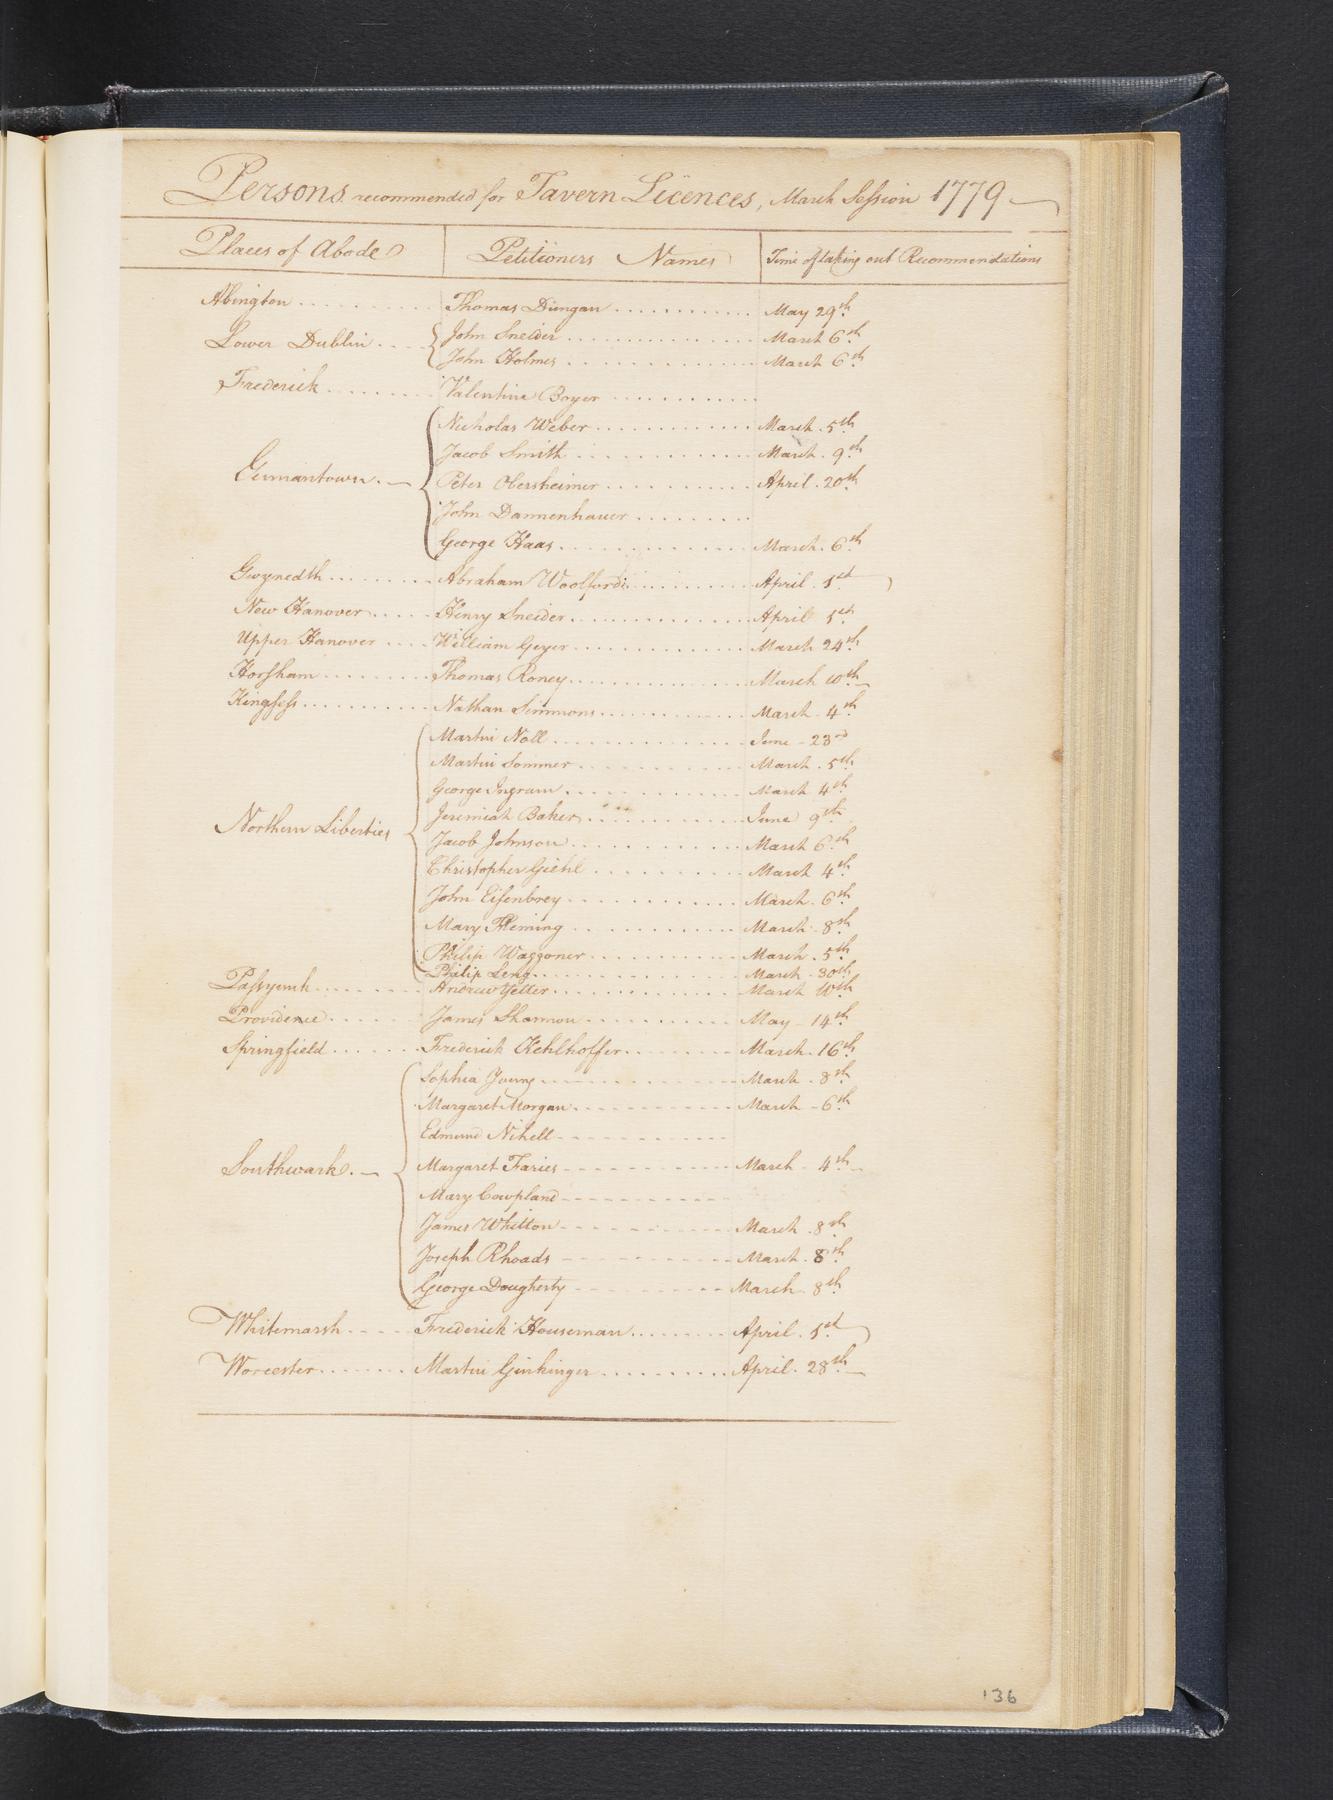 Persons recommended for Tavern Licences, March Session 1779
Places of Abode Petitioners Names Time of taking out Recommendations
Abington Thomas Dungan May 29th
Lower Dublin John Sneider March 6th
John Holmes March 6th
Frederick Valentine Boyer
Nicholas Weber March 5th
Jacob Smith March 9th
Germantown Peter Obersheimer April 20th
John Dannenhauer
George Haas March 6th
Gwynedth Abraham Woolford April 1st
New Hanover Henry Sneider April 1st
Upper Hanover William Geyer March 24th
Horsham Thomas Roney March 10th
Kingsess Nathan Simmons March 4th
Martin Noll June 23d
Martin Sommer March 5th
George Ingram March 4th
Jeremiah Baker June 9th
Northern Liberties Jacob Johnson March 6th
Christopher Giehl March 4th
John Eisenbrey March 6th
Mary Fleming March 8th
Philip Waggoner March 5th
Philip Leng March 30th
Passyunk Andrew Yetter March 10th
Providence James Shannon May 14th
Springfield Frederick Kehlhoffer March 16th
Sophia Young March 8th
Margaret Morgan March 6th
Edmund Nihell
Southwark Margaret Faries March 4th
Mary Cowpland
James Whitton March 8th
Joseph Rhoads March 8th
George Dougherty March 8th
Whitemarsh Frederick Houseman April 1st
Worcester Martin Ginkinger April 28th
136